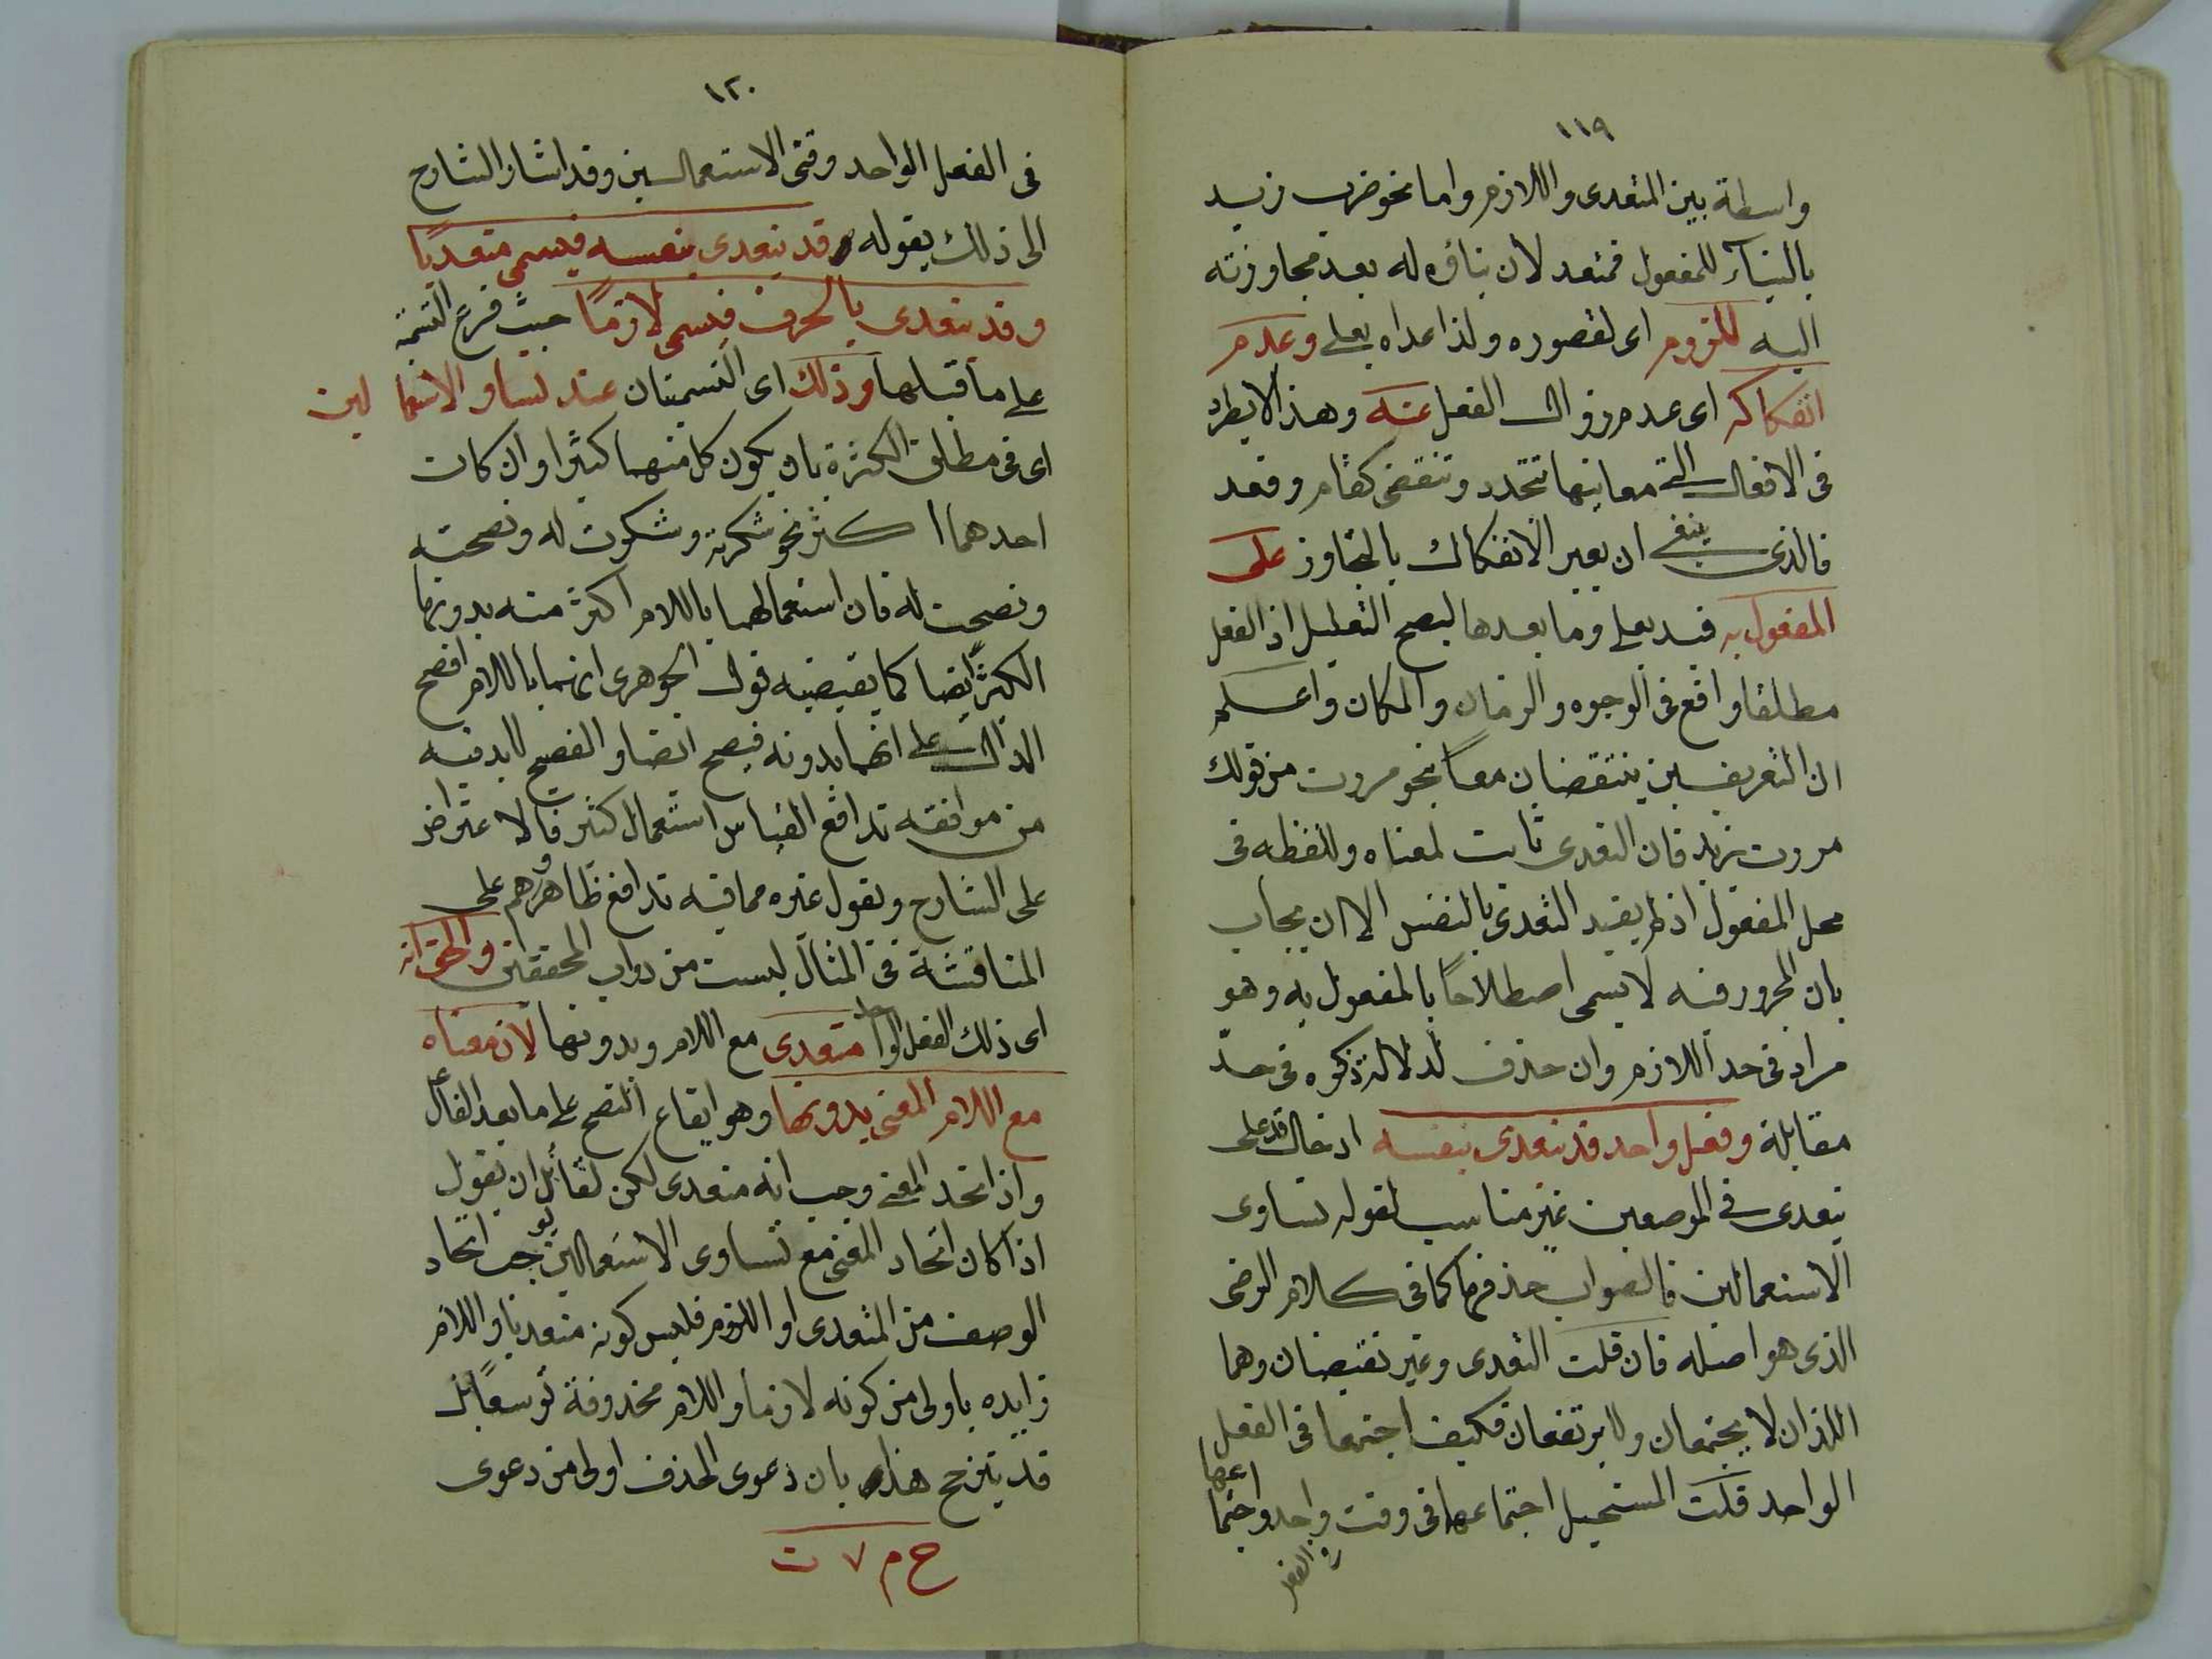 ١١٩
واسطة بين المتعدى واللازم واما نحو ضرب زيد
بالبناء للمفعول فمتعد لان بناؤه له بعد مجاوزته
اليه للزوم اى لقصوره ولذا عداه بعلى وعدم
انفكاكه اى عدم زوال الفعل عنه وهذا لا يطرد
فى الافعال التى معانيها تتجدد وتنقضى كقام وقعد
فالذى ينبغى ان يعبر الانفكاك بالتجاوز على
المفعول به قيد بعلى وما بعدها ليصح التعليل اذ الفعل
مطلقا واقع فى الوجوه والزمان والمكان واعلم
ان التعريفين ينتقضان معا بنحو مررت من قولك
مررت بزيد فان التعدى ثابت لمعناه وللفظه فى
محل المفعول اذ لم يقيد التعدى بالنفس الا ان يجاب
بان المجرور فيه لا يسمى اصطلاحًا بالمفعول به وهو
مراد فى حد اللازم وان حذف لدلالة ذكره فى حد
مقابلة وفعل واحد قد يتعدى بنفسه ادخال قد على
يتعدى فى الموضعين غير مناسب لقوله تساوى
الاستعمالين فالصواب حذفها كما فى كلام الرضى
الذى هو اصله فان قلت التعدى وغير نقيضان وهما
اللذان لا يجتمعان ولا يرتفعان فكيف اجتمعا فى الفعل
الواحد قلت المستحيل اجتماعهما فى وقت واحد واجتما
عهما
فى الفعل
١٢٠
فى الفعل الواحد وقتى الاستعمالين وقد اشار الشارح
الى ذلك بقوله وقد يتعدى بنفسه فيسمى متعديًا
وقد يتعدى بالحرف فيسمى لازمًا حيث فرع التسمية
على ما قبلها وذلك اى التسميتان عند تساوى الاستعما لين
اى فى مطلق الكثرة بان يكون كل منهما كثيرا وان كان
احدهما اكثر نحو شكرته وشكرت له ونصحته
ونصحت له فان استعمالهما باللام اكثر منه بدونها
الكثير ايضا كما يقتضيه قول الجوهرى انهما باللام افصح
الدال على انهما بدونه فصيح ايضا والفصيح لا بد فيه
من موافقه تدافع القياس استعمال كثير فالاعتراض
على الشارح وبقول غيره مما فيه تدافع ظاهر وهم على
المناقشة فى المثال ليست من دواب المحققين والحق انه
اى ذلك الفعل الواحد متعدى مع اللام وبدونها لان معناه
مع اللام المعنى بدونها وهو ايقاع النصح على ما بعد الفاعل
واذا اتحد المعنى وجب انه متعدى لكن لقائل ان يقول
اذا كان اتحاد المعنى مع تساوى الاستعمالين يوجب اتحاد
الوصف من المتعدى او اللزوم فليس كونه متعديا واللام
زايده باولى من كونه لازما واللام محذوفة توسعًا بل
قد يترجح هذا بان دعوى الحذف اولى من دعوى
ح م ٧ ت